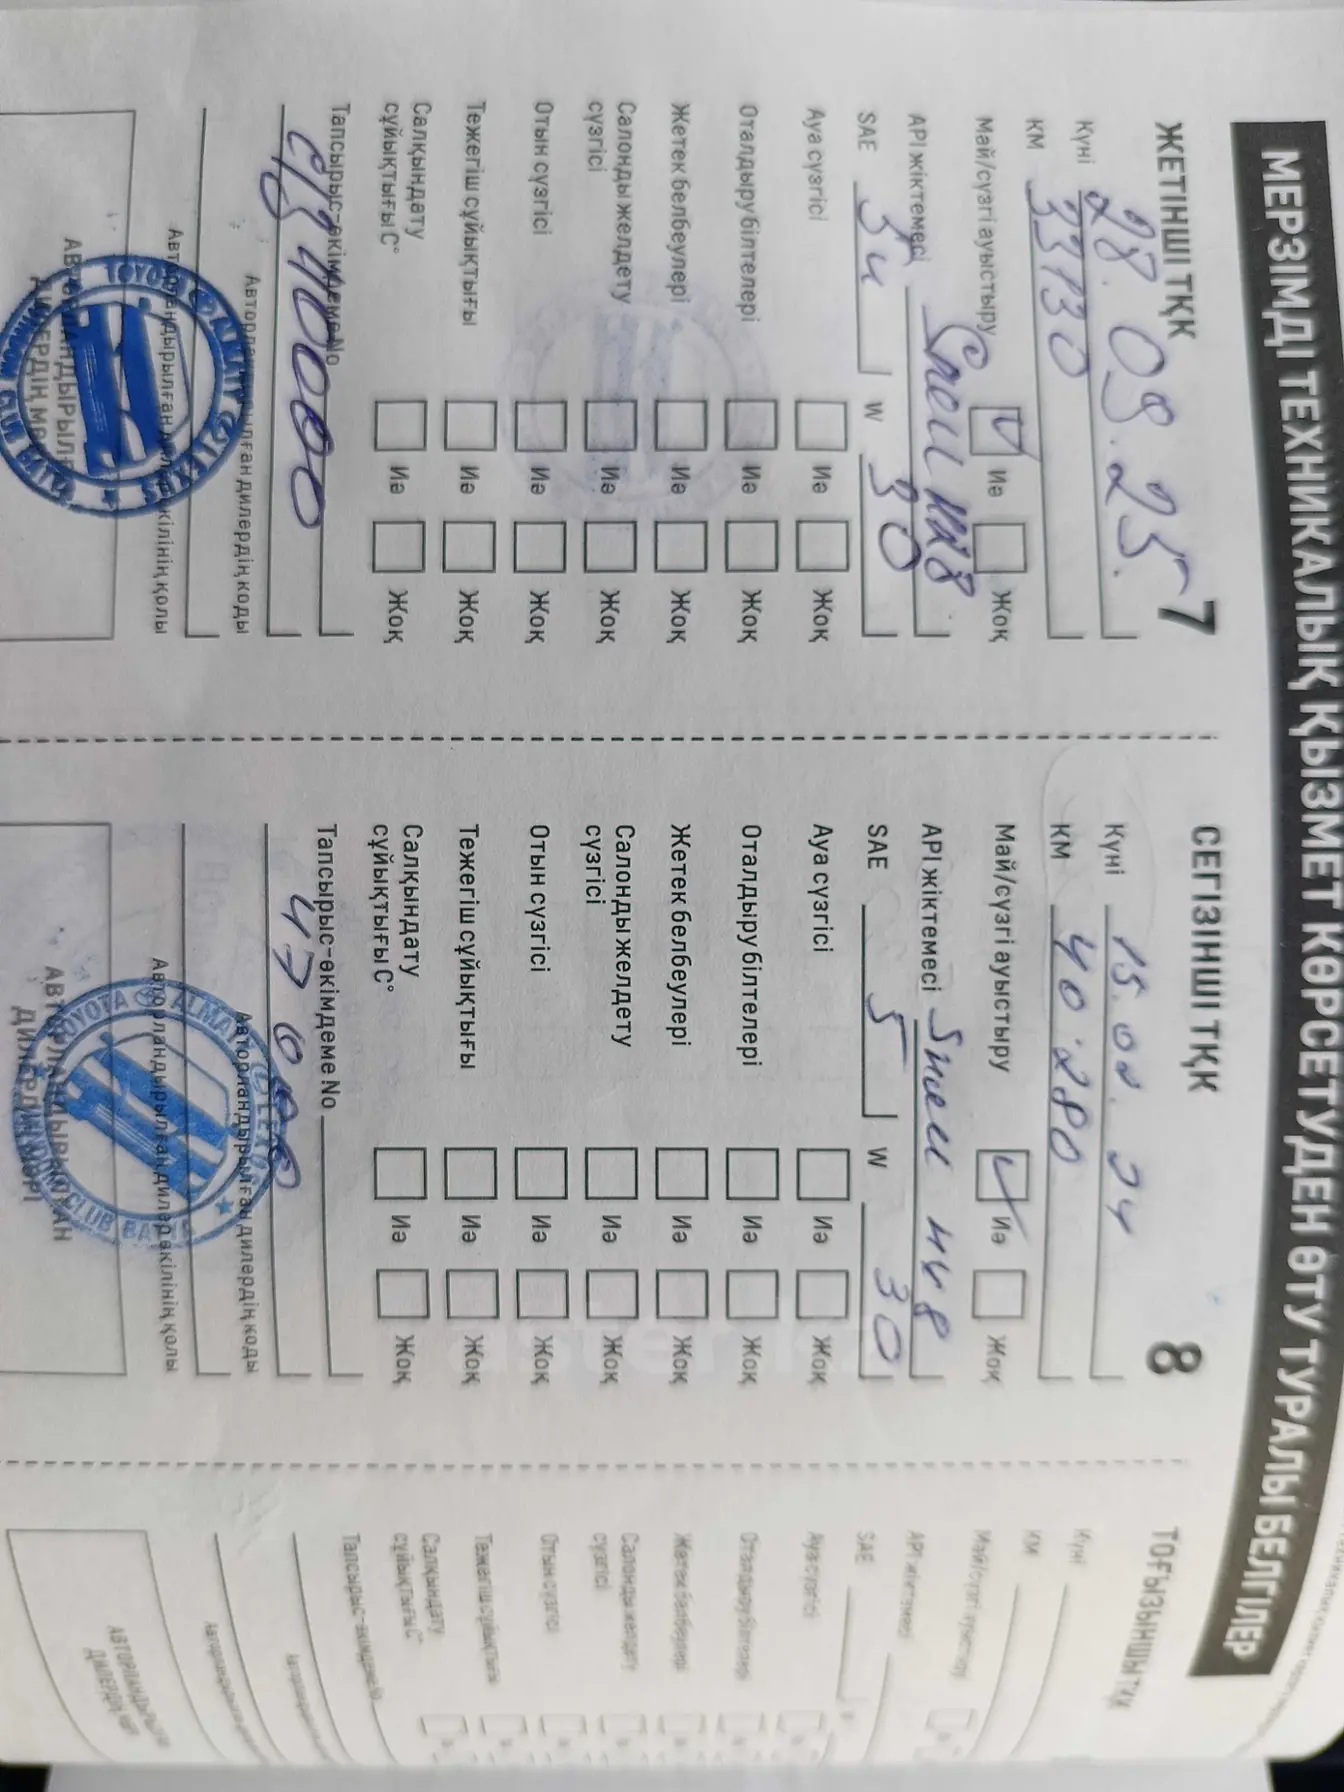 МЕРЗІМДІ ТЕХНИКАЛЫҚ ҚЫЗМЕТ КӨРСЕТУДЕН ӨТУ ТУРАЛЫ БЕЛГІЛЕР
ЖЕТІНШІ ТҚК 7
Күні 28.09.23
КМ 33130
Май/сүзгі ауыстыру Иә Жоқ
API жіктемесі
SAE 5 W 30
Ауа сүзгісі Иә Жоқ
Оталдыру білтелері Иә Жоқ
Жетек белбеулері Иә Жоқ
Салонды желдету
сүзгісі Иә Жоқ
Отын сүзгісі Иә Жоқ
Тежегіш сұйықтығы Иә Жоқ
Салқындату
сұйықтығы С° Иә Жоқ
Тапсырыс-өкімдеме No
40000
Авторландырылған дилердің коды
Авторландырылған дилер өкілінің қолы
TOYOTA ALMATY
CLUB
СЕГІЗІНШІ ТҚК 8
Күні 15.02.24
КМ 40.280
Май/сүзгі ауыстыру Иә Жоқ
API жіктемесі
SAE 5 W 30
Ауа сүзгісі Иә Жоқ
Оталдыру білтелері Иә Жоқ
Жетек белбеулері Иә Жоқ
Салонды желдету
сүзгісі Иә Жоқ
Отын сүзгісі Иә Жоқ
Тежегіш сұйықтығы Иә Жоқ
Салқындату
сұйықтығы С° Иә Жоқ
Тапсырыс-өкімдеме No
Авторландырылған дилердің коды
Авторландырылған дилер өкілінің қолы
АВТОРЛАНДЫРЫЛҒАН
ДИЛЕРДІҢ МӨРІ
TOYOTA ALMATY
CLUB
ТОҒЫЗЫНШЫ ТҚК
Күні
КМ
Май/сүзгі ауыстыру
API жіктемесі
SAE
Ауа сүзгісі
Оталдыру білтелері
Жетек белбеулері
Салонды желдету
сүзгісі
Отын сүзгісі
Тежегіш сұйықтығы
Салқындату
сұйықтығы С°
Тапсырыс-өкімдеме No
АВТОРЛАНДЫРЫЛҒАН
ДИЛЕРДІҢ МӨРІ